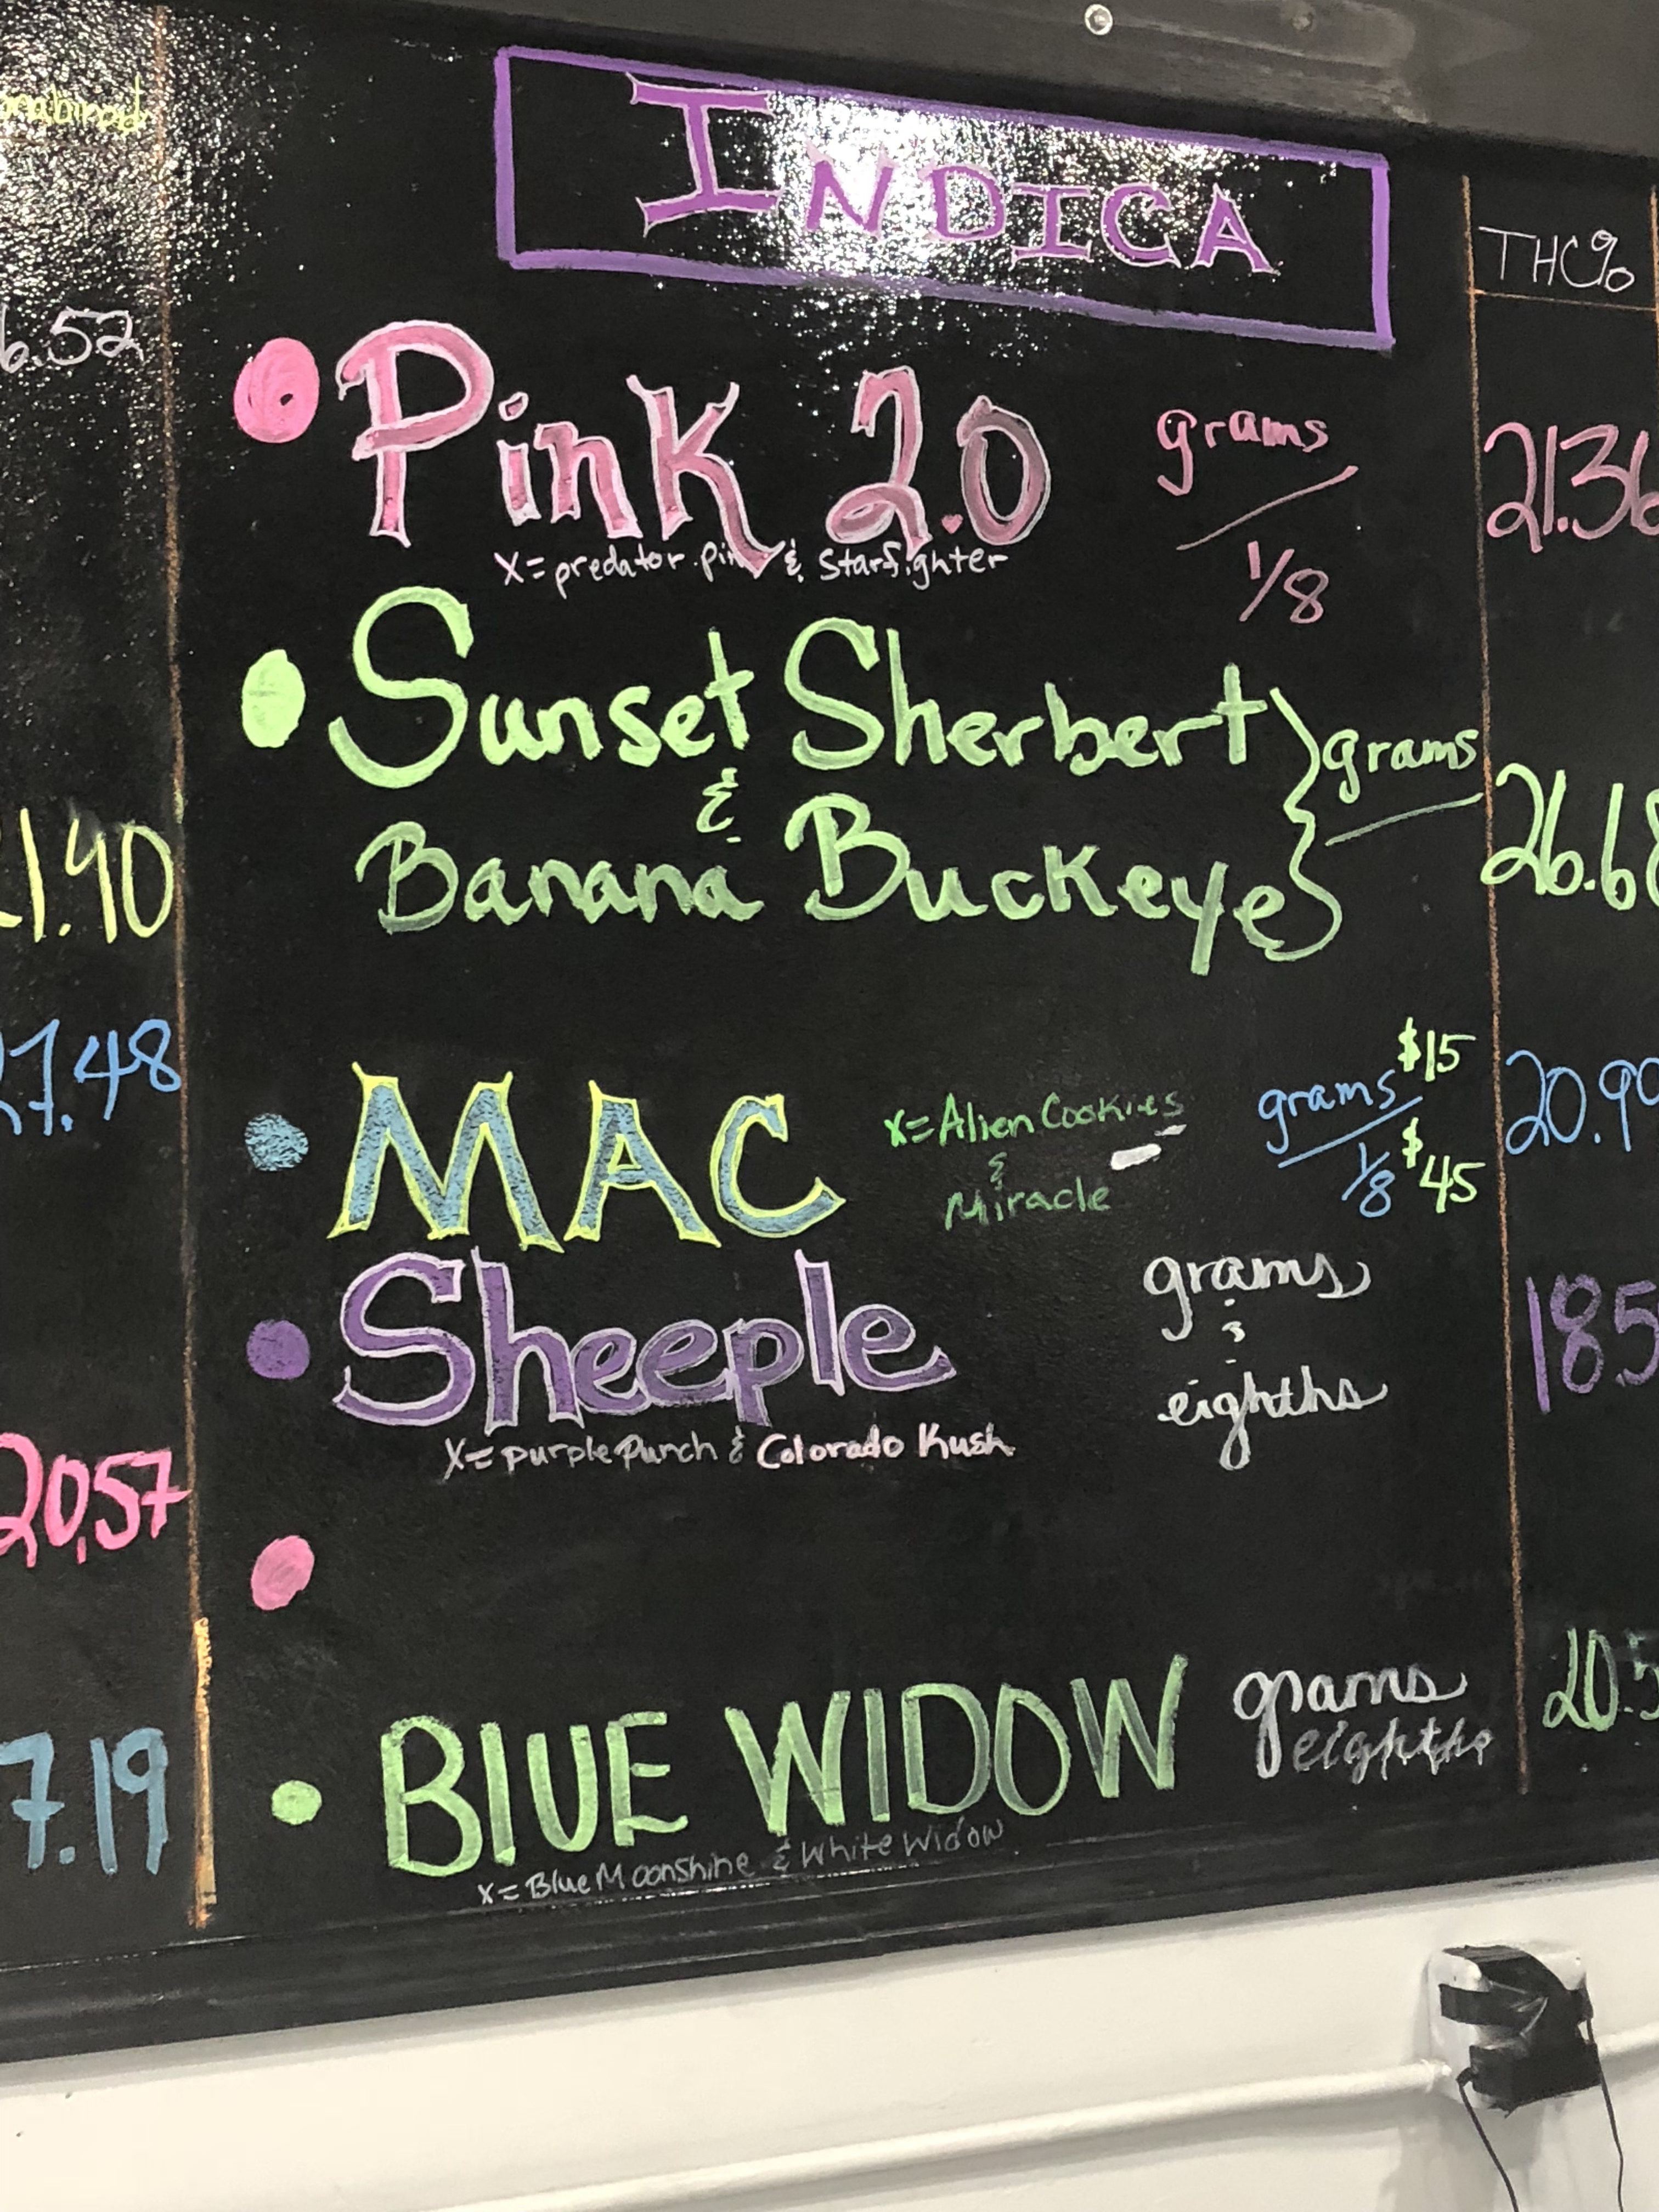 INDICA
THC%
6.52
Pink 2.0
grams
1/8
21.36
X= predator pink & Starfighter
Sunset Sherbert
&
Banana Buckeye
grams
26.68
1.40
7.48
MAC
x= Alien Cookies
&
Miracle
grams $15
1/8 $45
20.99
Sheeple
grams
&
eighths
18.5
X= purple Punch & Colorado Kush
20.57
BLUE WIDOW
grams
eighths
20.5
x= Blue Moonshine & White Widow
7.19